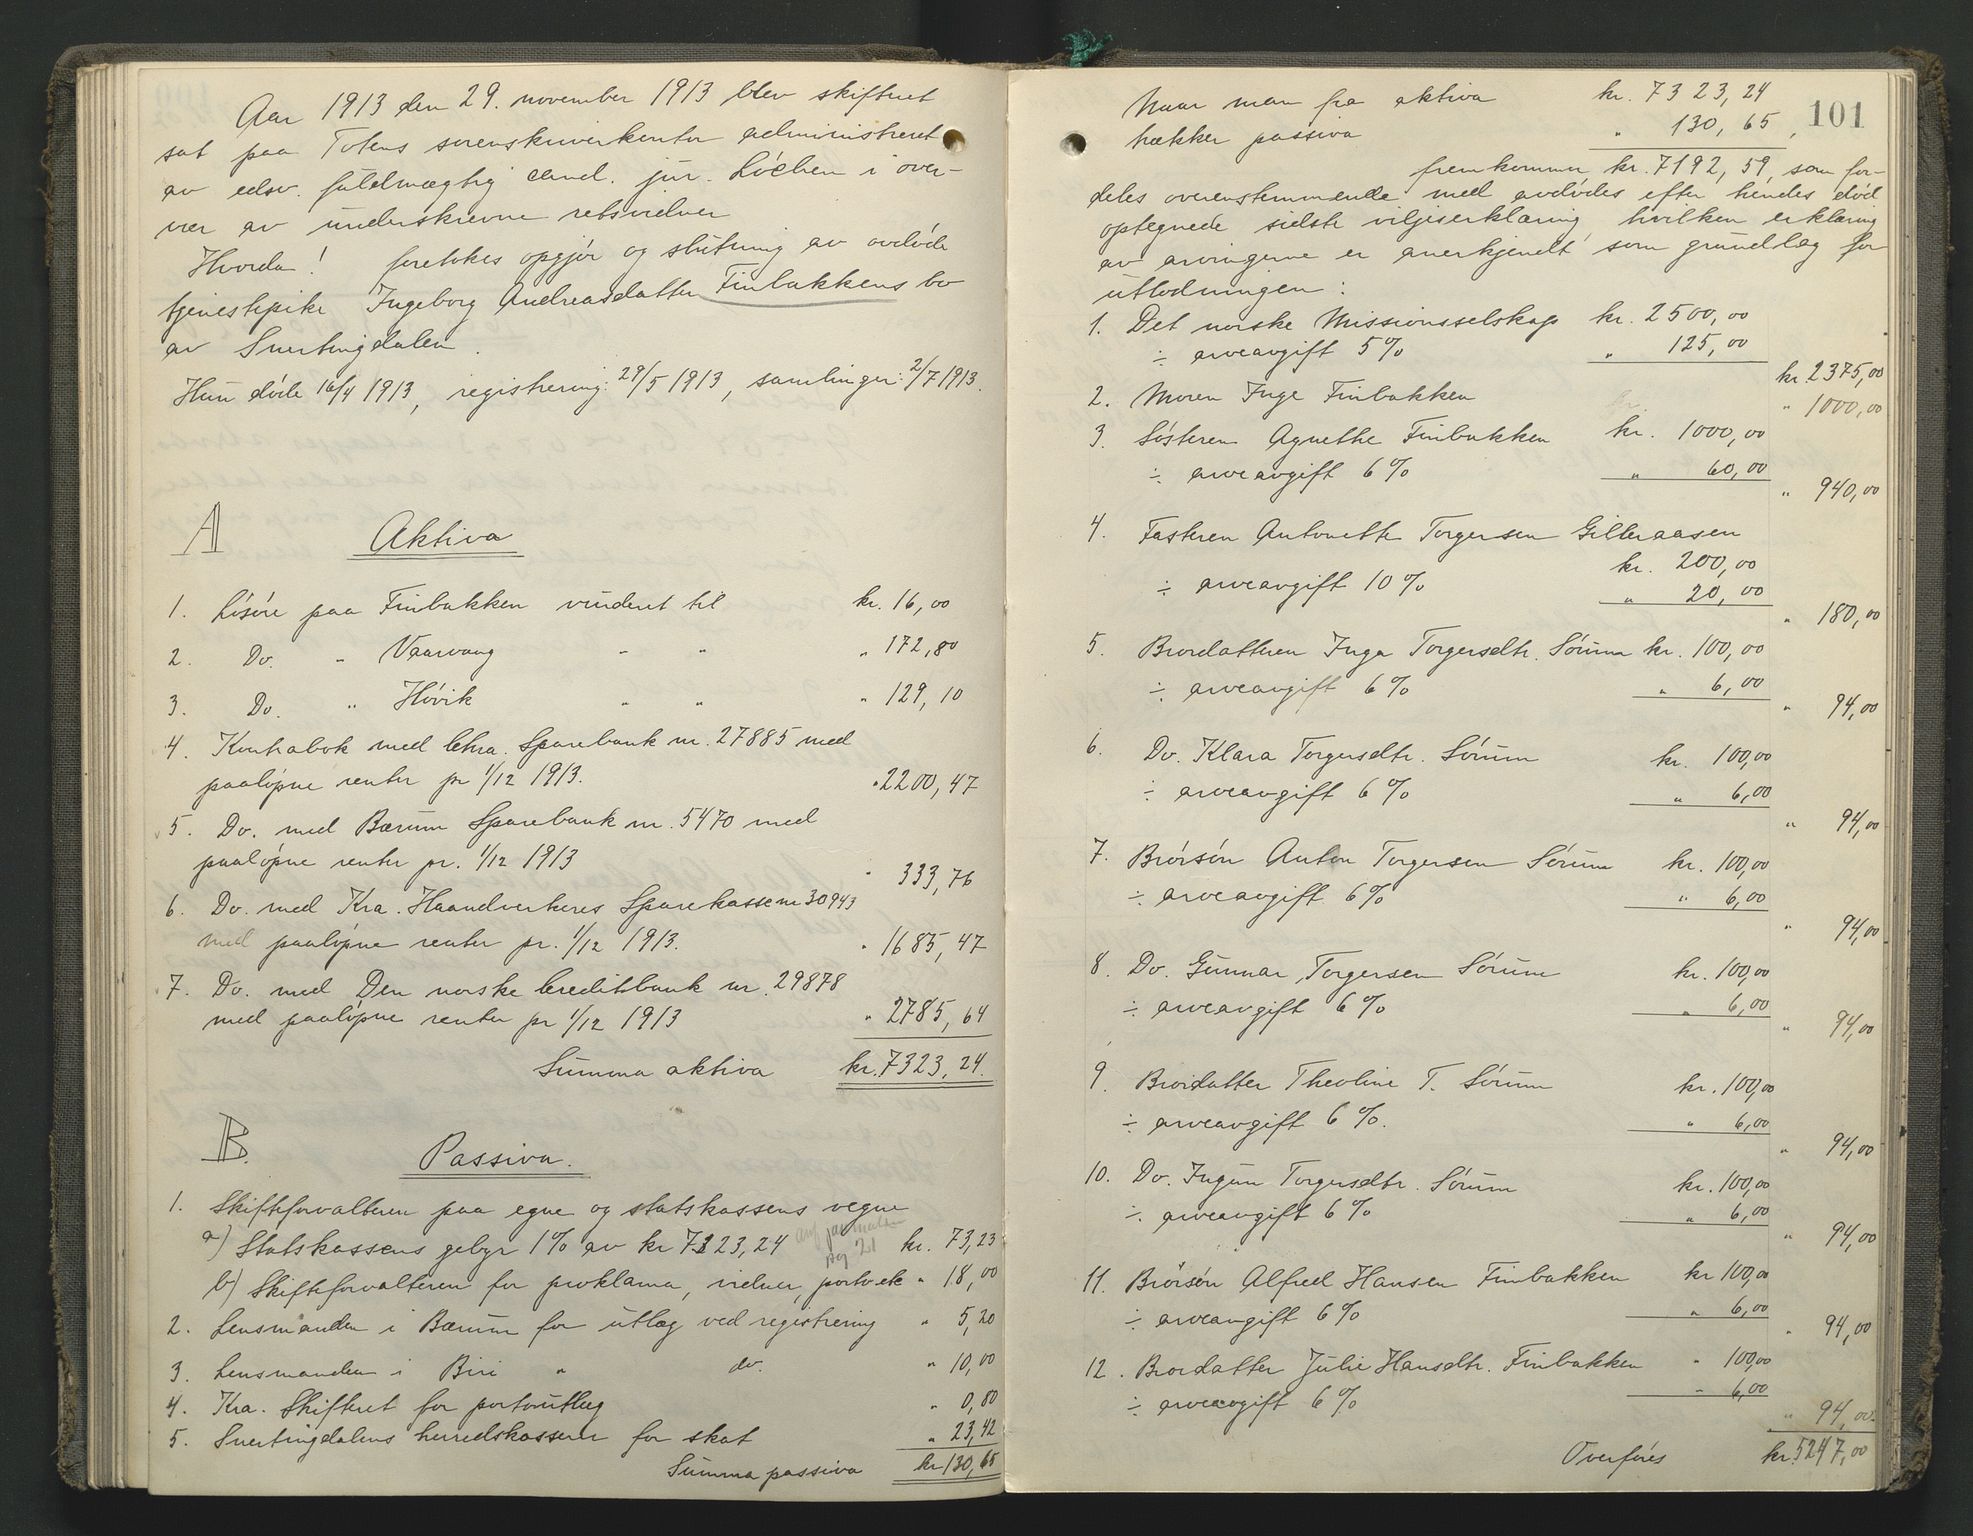 Aar 1913 den 29. november 1913 blev skifteret
sat paa Totens sorenskriverkontor administreret
av edsv. fuldmægtig cand. jur. Löchen i over-
vær av underskrevne retsvidner
Hvorda! foretokes opgjör og slutning av avdöde
tjenestepike Ingeborg Andreasdatter Finbakkens bo
av Snertingdalen.
Hun döde 16/4 1913, registrering: 29/5 1913, samlinger: 2/7 1913.
A Aktiva
1. Lösöre paa Finbakken vurderet til kr. 16,00
2. Do. " Vaarvang " " " 172,80
3. Do. " Hövik " " " 129,10
4. Kontrabok med Chra. Sparebank nr. 27885 med
paalöpne renter pr 1/12 1913. " 2200,47
5. Do. med Bærum Sparebank nr. 5470 med
paalöpne renter pr. 1/12 1913 " 333,76
6. Do. med Kra. Haandverkeres Sparekasse nr 30943
med paalöpne renter pr. 1/12 1913. " 1685,47
7. Do. med Den norske Creditbank nr. 29878
med paalöpne renter pr 1/12 1913 " 2785,64
Summa aktiva kr. 7323,24.
B. Passiva.
1. Skifteforvalteren paa egne og statskassens vegne
a) Statskassens gebyr 1% av kr 7323,24 kr. 73,23
b) Skifteforvalteren for proklama, vidner, porto etc " 18,00
2. Lensmanden i Bærum for utlæg ved registrering " 5,20
3. Lensmanden i Biri " do. " 10,00
4. Kra. Skifteret for portoutlæg " 0,80
5. Snertingdalens herredskasserer for skat " 23,42
Summa passiva kr 130,65
101
Naar man fra aktiva kr. 7323,24
trækker passiva " 130,65,
fremkommer kr. 7192,59, som for-
deles overenstemmende med avdödes efter hendes död
optegnede sidste viljeserklæring, hvilken erklæring
av arvingerne er anerkjendt som grundlag for
utlodningen:
1. Det norske Missionsselskap kr. 2500,00
÷ arveavgift 5% " 125,00
kr. 2375,00
2. Moren Inge Finbakken " 1000,00
3. Sösteren Agnethe Finbakken kr. 1000,00
÷ arveavgift 6% " 60,00
" 940,00
4. Fasteren Antonette Torgersen Gilleraasen
kr. 200,00
÷ arveavgift 10% " 20,00
" 180,00
5. Brordatteren Inga Torgersdtr. Sörum kr. 100,00
÷ arveavgift 6% " 6,00
" 94,00
6. Do. Klara Torgersdtr. Sörum kr. 100,00
÷ arveavgift 6% " 6,00
" 94,00
7. Brörsön Anton Torgersen Sörum kr. 100,00
÷ arveavgift 6% " 6,00
" 94,00
8. Do. Gunnar Torgersen Sörum kr. 100,00
÷ arveavgift 6% " 6,00
" 94,00
9. Brordatter Theoline T. Sörum kr. 100,00
÷ arveavgift 6%. " 6,00
" 94,00
10. Do. Ingun Torgersdtr. Sörum kr. 100,00
÷ arveavgift 6% " 6,00
" 94,00
11. Brörsön Alfred Hansen Finbakken kr 100,00
÷ arveavgift 6% " 6,00
" 94,00
12. Brordatter Julie Hansdtr. Finbakken " 100,00
÷ arveavgift 6% " 6,00
" 94,00
Overföres kr. 5247,00